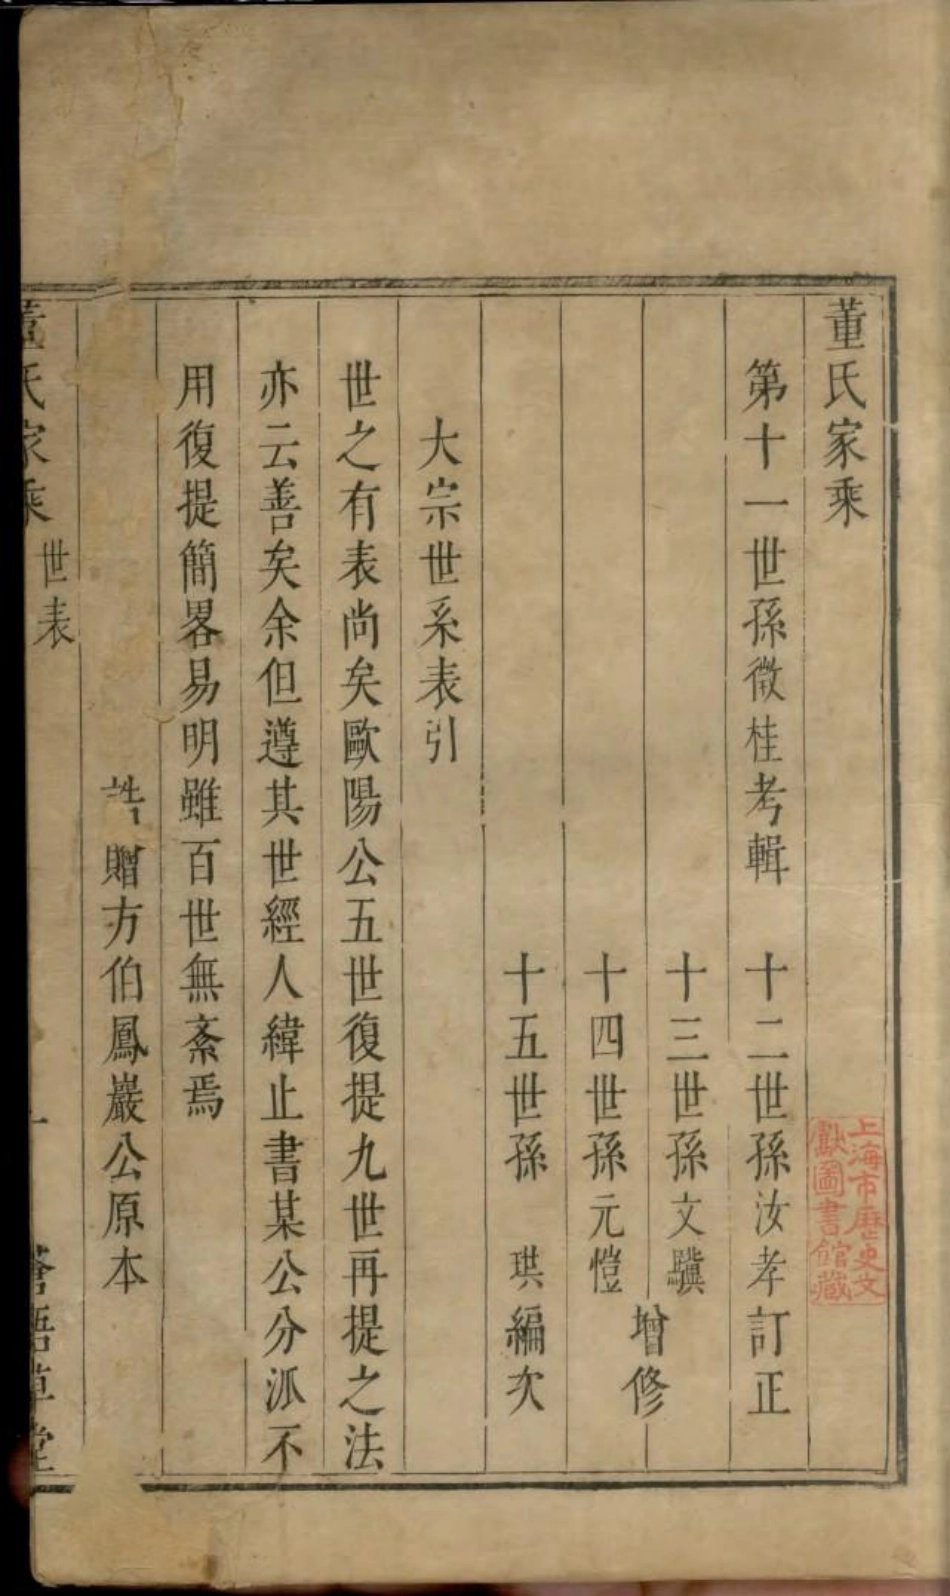 董氏家乘
第十一世孫微桂考輯 十二世孫汝孝訂正
十三世孫文驥
十四世孫元愷
增修
十五世孫 琪編次
大宗世系表引
世之有表尚矣歐陽公五世復提九世再提之法
亦云善矣余但遵其世經人緯止書某公分派不
用復提簡畧易明雖百世無紊焉
誥贈方伯鳳巖公原本
董氏家乘 世表 一 草堂
上海市歷史文
獻圖書館藏